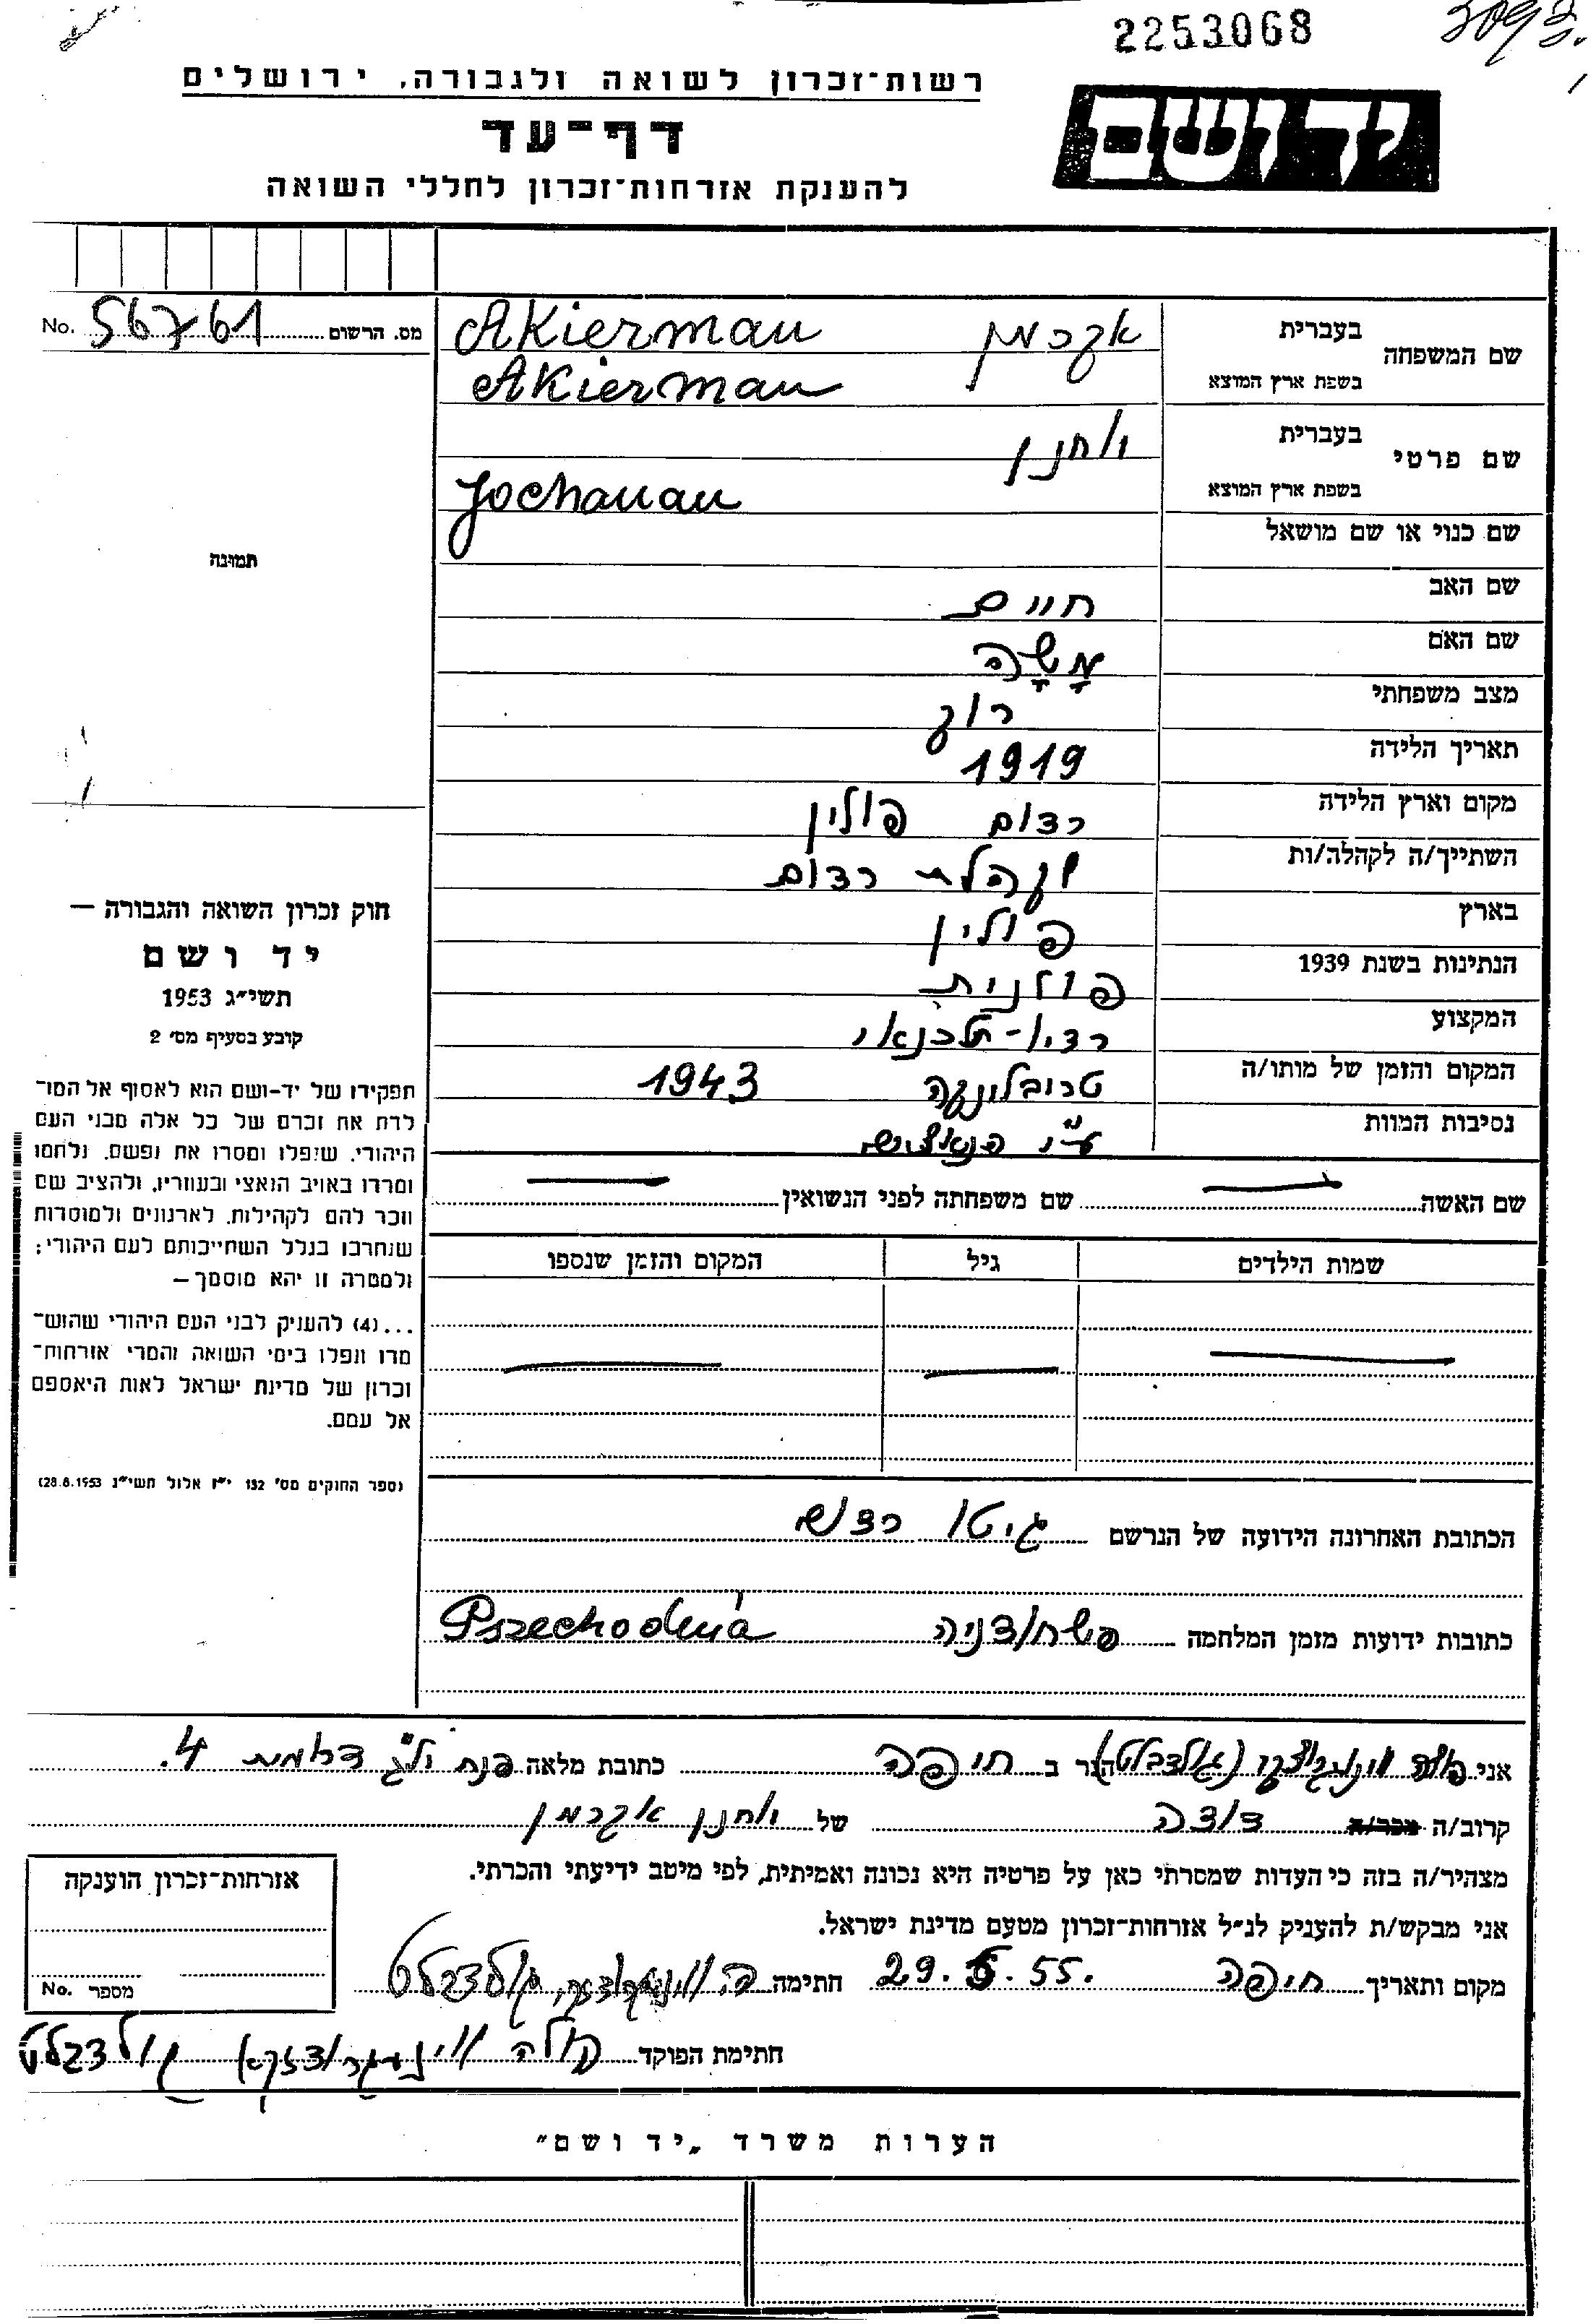 2253068
3093.
רשות־זכרון לשואה ולגבורה, ירושלים
יד ושם
דף־עד
להענקת אזרחות־זכרון לחללי השואה
שם המשפחה בעברית אקרמן Akierman
בשפת ארץ המוצא Akierman
מס. הרשום 56761 No.
שם פרטי בעברית יוחנן
בשפת ארץ המוצא Jochanan
שם כנוי או שם מושאל
תמונה
שם האב חיים
שם האם מָשָׁה
מצב משפחתי רווק
תאריך הלידה 1919
מקום וארץ הלידה רדום פולין
השתייך/ה לקהלה/ות קהלת רדום
בארץ פולין
הנתינות בשנת 1939 פולנית
המקצוע רדיו-טכנאי
המקום והזמן של מותו/ה טרובלינקה 1943
נסיבות המוות ע"י הנאצים
שם האשה — שם משפחתה לפני הנשואין —
שמות הילדים גיל המקום והזמן שנספו
— — —
חוק זכרון השואה והגבורה —
יד ושם
תשי״ג 1953
קובע בסעיף מס׳ 2
תפקידו של יד-ושם הוא לאסוף אל המו־
לדת את זכרם של כל אלה מבני העם
היהודי, שנפלו ומסרו את נפשם, נלחמו
ומרדו באויב הנאצי ובעוזריו, ולהציב שם
וזכר להם לקהילות, לארגונים ולמוסדות
שנחרבו בגלל השתייכותם לעם היהודי;
ולמטרה זו יהא מוסמך —
...(4) להעניק לבני העם היהודי שהוש־
מדו ונפלו בימי השואה והמרי אזרחות־
זכרון של מדינת ישראל לאות היאספם
אל עמם.
(ספר החוקים מס׳ 132 י״ז אלול תשי״ג 28.8.1953)
הכתובת האחרונה הידועה של הנרשם גיטו רדום
כתובות ידועות מזמן המלחמה פשחודניה Pszechodnia
אני הגר ב חיפה כתובת מלאה 4.
קרוב/ה מכר/ה דודה של יוחנן אקרמן
מצהיר/ה בזה כי העדות שמסרתי כאן על פרטיה היא נכונה ואמיתית, לפי מיטב ידיעתי והכרתי.
אני מבקש/ת להעניק לנ״ל אזרחות־זכרון מטעם מדינת ישראל.
מקום ותאריך חיפה 29.5.55. חתימה גולדבלט
אזרחות־זכרון הוענקה
מספר No.
חתימת הפוקד גולדבלט
הערות משרד „יד ושם״